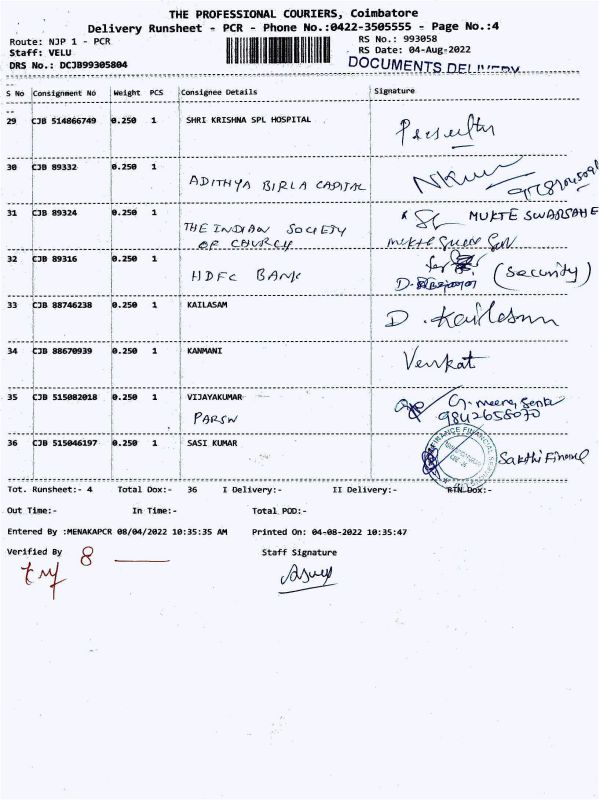 THE PROFESSIONAL COURIERS, Coimbatore
Delivery Runsheet - PCR - Phone No.:0422-3505555 - Page No.:4
Route: NJP 1 - PCR RS No.: 993058
Staff: VELU RS Date: 04-Aug-2022
DRS No.: DCJB99305804 DOCUMENTS DELIVERY
S No Consignment No Weight PCS Consignee Details Signature
29 CJB 514866749 0.250 1 SHRI KRISHNA SPL HOSPITAL
30 CJB 89332 0.250 1 ADITHYA BIRLA CAPITAL
31 CJB 89324 0.250 1 THE INDIAN SOCIETY MUKTE SWARSAHE
OF CHURCH
32 CJB 89316 0.250 1 HDFC BANK (Security)
33 CJB 88746238 0.250 1 KAILASAM D. Kailasam
34 CJB 88670939 0.250 1 KANMANI Venkat
35 CJB 515082018 0.250 1 VIJAYAKUMAR
PARSW 9842658070
36 CJB 515046197 0.250 1 SASI KUMAR Sakthi Finance
Tot. Runsheet:- 4 Total Dox:- 36 I Delivery:- II Delivery:- RTN Dox:-
Out Time:- In Time:- Total POD:-
Entered By :MENAKAPCR 08/04/2022 10:35:35 AM Printed On: 04-08-2022 10:35:47
Verified By 8 Staff Signature